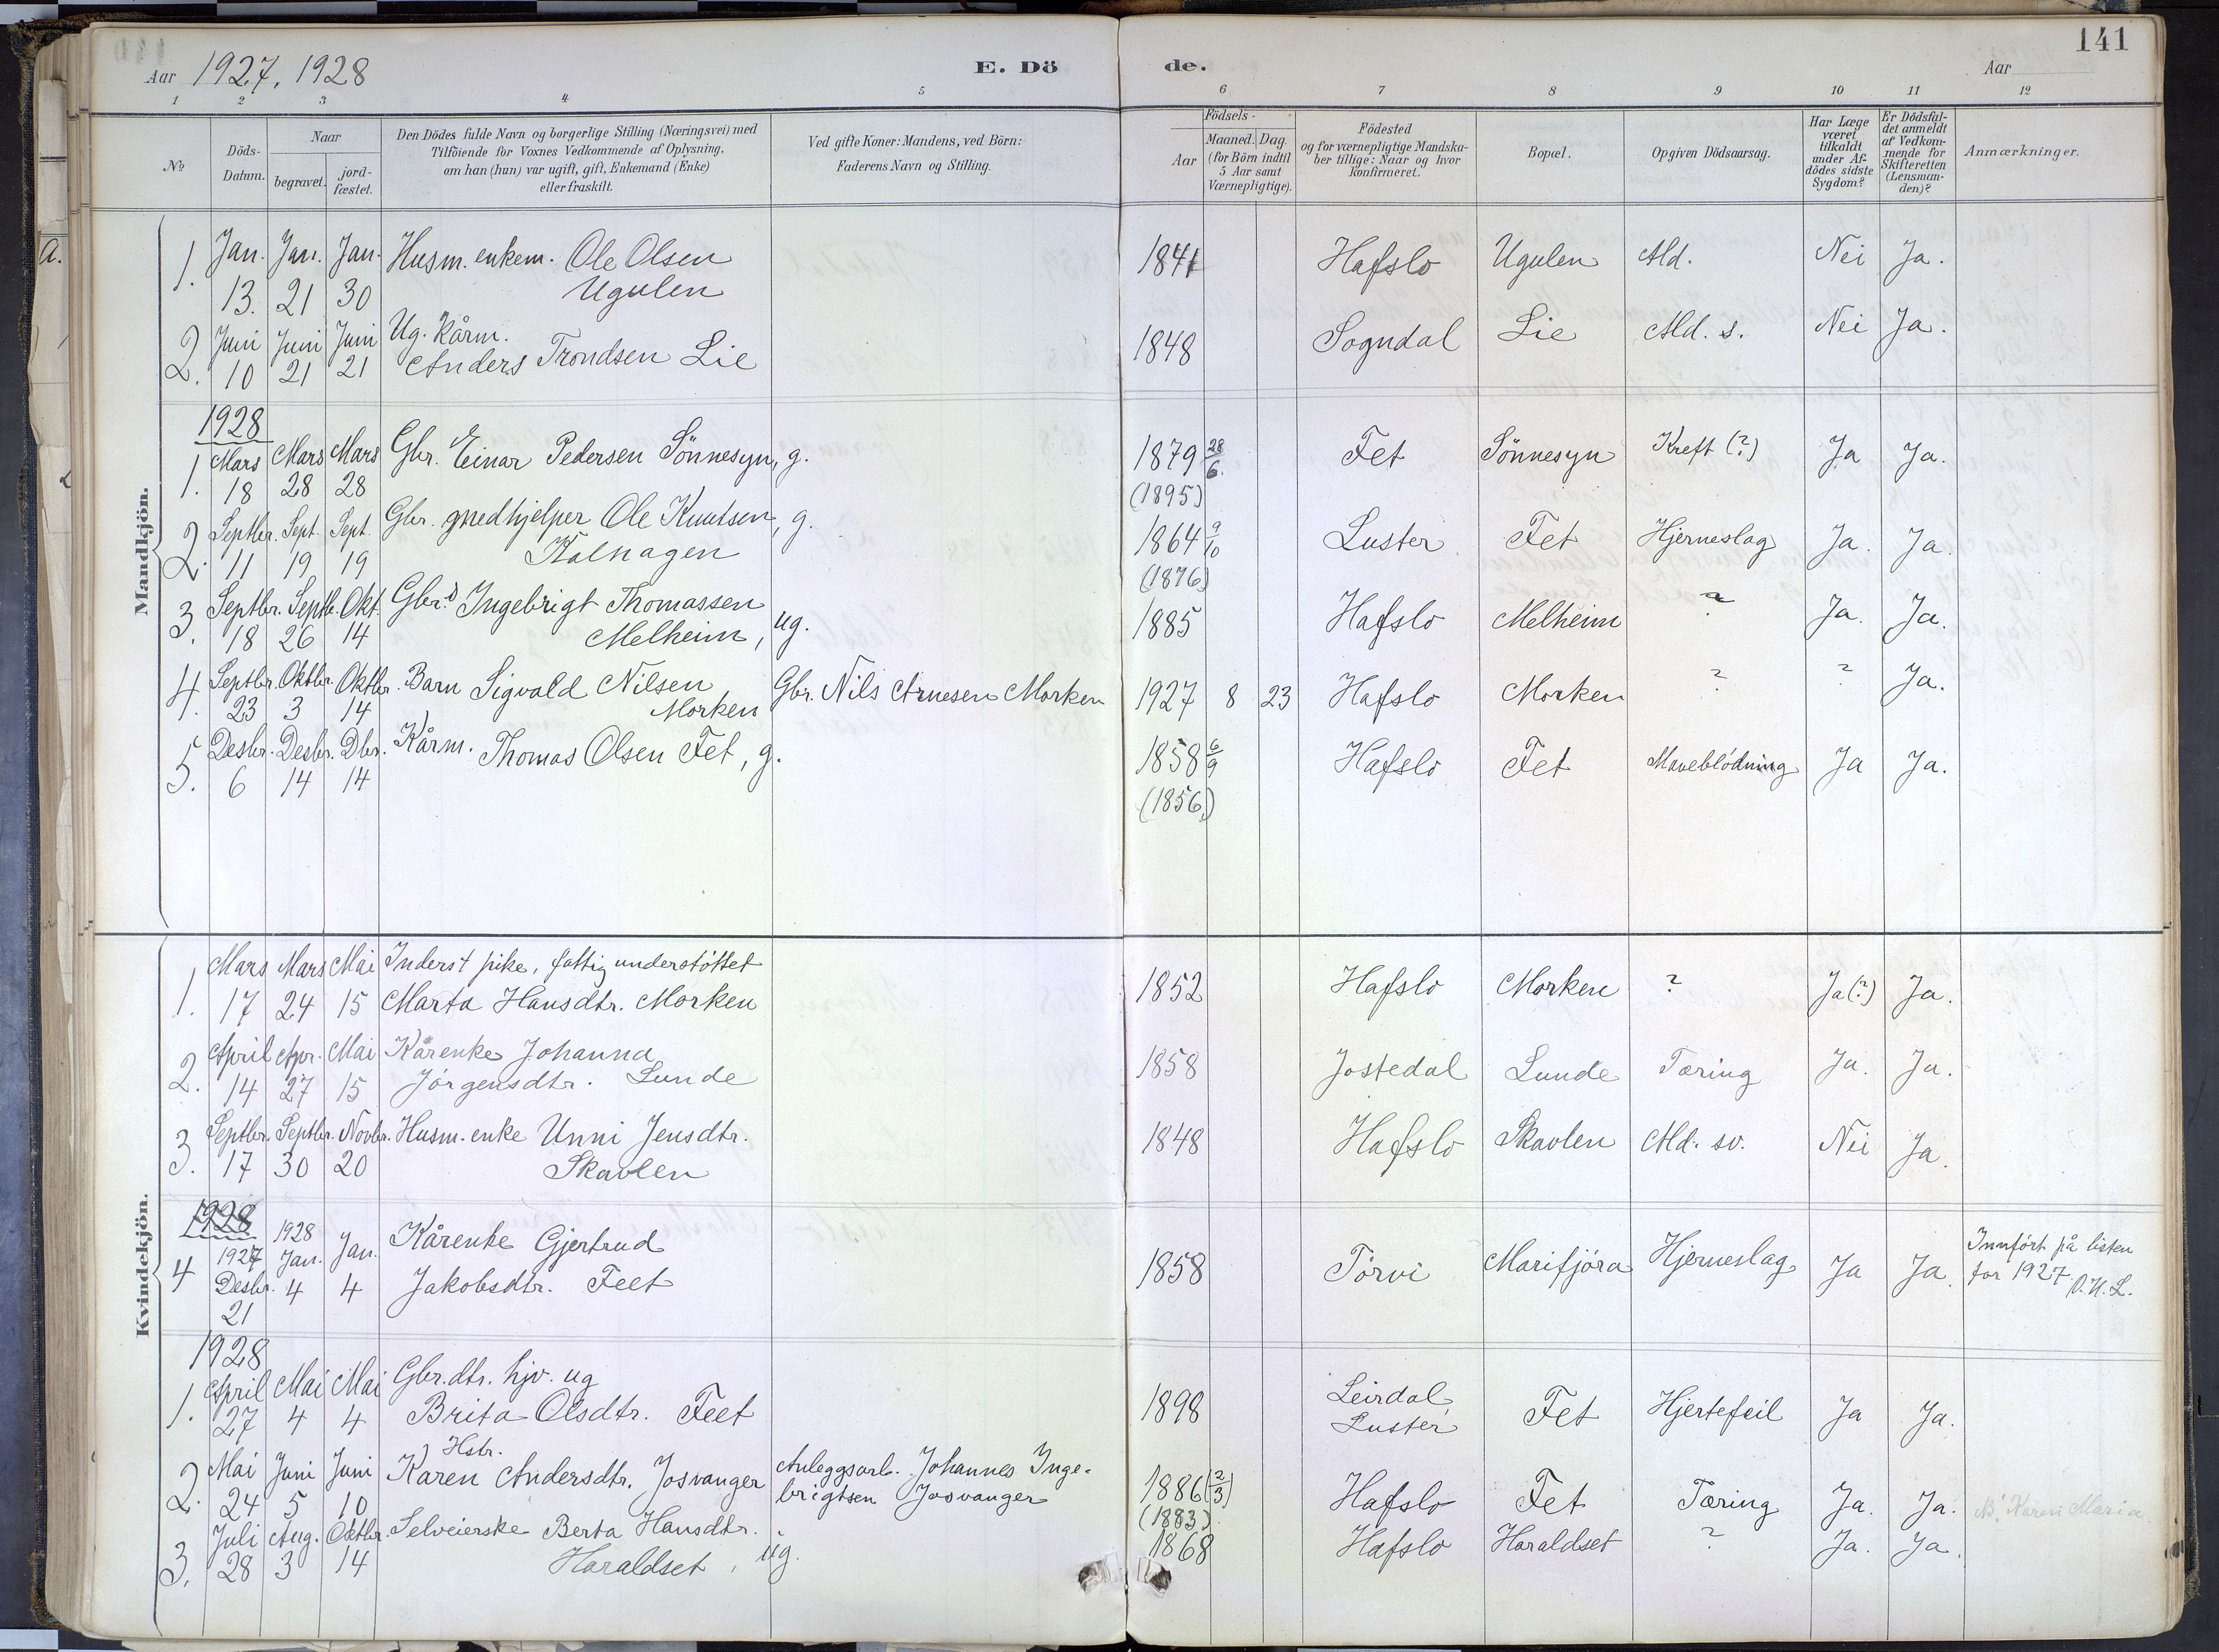 Aar 1927, 1928 E. Dö
de. Aar 141
1 2 3 4 5 6 7 8 9 10 11 12
No
Döds-
Datum.
Naar
begravet.
jord-
fæstet.
Den Dödes fulde Navn og borgerlige Stilling (Næringsvei) med
Tilföiende for Voxnes Vedkommende af Oplysning,
om han (hun) var ugift, gift, Enkemand (Enke)
eller fraskilt.
Ved gifte Koner: Mandens, ved Börn:
Faderens Navn og Stilling.
Födsels-
Aar
Maaned. Dag.
(for Börn indtil
5 Aar samt
Værnepligtige).
Födested
og for værnepligtige Mandska-
ber tillige: Naar og hvor
konfirmeret.
Bopæl.
Opgiven Dödsaarsag.
Har Læge
været
tilkaldt
under Af-
dödes sidste
Sygdom?
Er Dödsfal-
det anmeldt
af Vedkom-
mende for
Skifteretten
(Lensman-
den)?
Anmærkninger.
Mandkjön.
Jan. Jan. Jan. Husm. enkem. Ole Olsen
1. 13. 21 30 Ugulen
1841 Hafslo Ugulen Ald. Nei Ja.
Juni Juni Juni Ug. Kårm.
2. 10 21 21 Anders Trondsen Lie
1848 Sogndal Lie Ald. s. Nei Ja.
1928
Mars Mars Mars Gbr. Einar Pedersen Sönnesyn, g.
1. 18 28 28
1879 28/6. Fet Sönnesyn Kreft (?) Ja Ja.
(1895)
Septbr. Sept. Sept. Gbr. medhjelper Ole Knutsen, g.
2. 11 19 19 Kalhagen
1864 9/10 Luster Fet Hjerneslag Ja. Ja.
(1876)
Septbr. Septbr. Okt. Gbr. Ingebrigt Thomassen
3. 18 26 14 Melheim, ug.
1885 Hafslo Melheim ? Ja. Ja.
Septbr. Oktbr. Oktbr. Barn Sigvald Nilsen Gbr. Nils Arnesen Morken
4. 23 3 14 Morken
1927 8 23 Hafslo Morken ? ? Ja.
Desbr. Desbr. Dbr. Kårm. Thomas Olsen Fet, g.
5. 6 14 14
1858 6/9 Hafslo Fet Maveblödning Ja Ja.
(1856)
Kvindekjön.
Mars Mars Mai Inderst pike, fattig understöttet
1. 17 24 15 Marta Hansdtr. Morken
1852 Hafslo Morken ? Ja (?) Ja.
April Apr. Mai Kårenke Johanna
2. 14 27 15 Jörgensdtr. Lunde
1858 Jostedal Lunde Tæring Ja. Ja.
Septbr. Septbr. Novbr. Husm. enke Unni Jensdtr.
3. 17 30 20 Skavlen
1848 Hafslo Skavlen Ald. sv. Nei Ja.
1928
1927 1928
4 Desbr. Jan. Jan. Kårenke Gjertrud
21 4 4 Jakobsdtr. Feet
1858 Törvi Marifjöra Hjerneslag Ja Ja. Innfört på listen
for 1927 O.H.L.
1928
April Mai Mai Gbr. dtr. hjv. ug
1. 27 4 4 Brita Olsdtr. Feet
1898 Leirdal, Fet Hjertefeil Ja Ja.
Luster
Hstr.
Mai Juni Juni Karen Andersdtr. Josvanger Anleggsarb. Johannes Inge-
2. 24 5 10 brigtsen Josvanger
1886 (2/3) Hafslo Fet Tæring Ja. Ja. N! Karen Maria
(1883)
Juli Aug. Oktbr. Selveierske Berta Hansdtr.
3. 28 3 14 Haraldset, ug.
1868 Hafslo Haraldset ? Ja. Ja.